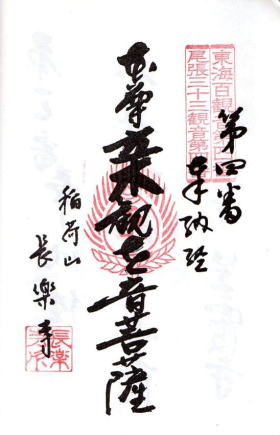 第四番
奉納経
東海百観音
尾張三十三観音第
本尊 観世音菩薩
稲荷山
長樂寺
長樂